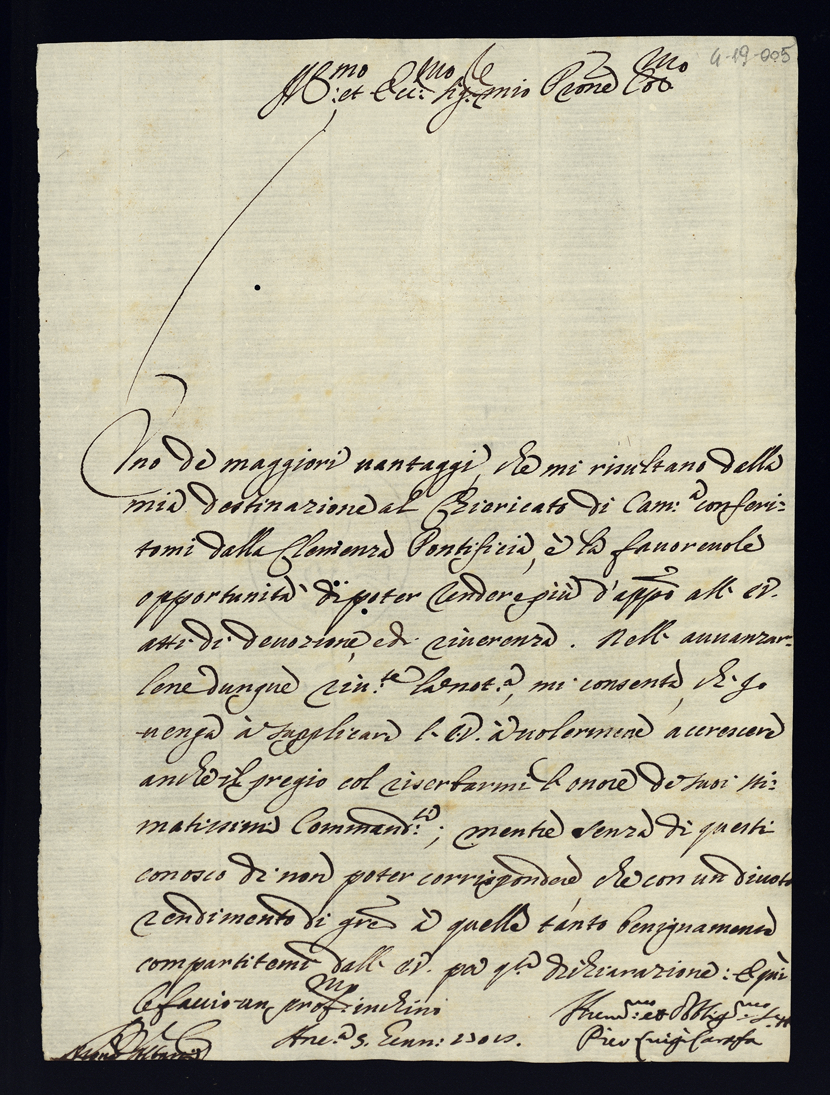 4-19-005
Ill:mo et Ecc:mo Sig:re mio Prone Col:mo
Uno de maggiori vantaggi, che mi risultano dalla
mia destinazione al Chiericato di Cam:a conferi-
tomi dalla Clemenza Pontificia, è la favorevole
opportunità di poter rendere più d'app.o all' E.V.
atti di devozione, e di riverenza. Nell' avvanzar-
lene dunque riv:te la not:a, mi consenta, ch'io
venga à supplicare l'E.V. à volermene accrescere
anche il pregio col riserbarmi l'onore de suoi sti-
matissimi Command:ti; mentre senza di questi
conosco di non poter corrispondere che con un divoto
rendimento di gr.e à quelle tanto benignamente
compartitemi dall' E.V. per q.ta dichiarazione: E qui
le faccio un prof:mo inchino
5. Genn:
et Obblig:mo
Pier Luigi Carafa